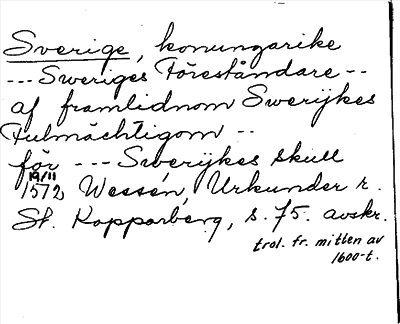 Sverige, konungarike
--- Sweriges Föreståndare --
af framlidnom Swerijkes
Fulmächtigom --
för --- Swerijkes skull
19/11
1572 Wessén, Urkunder r.
St. Kopparberg, s. 75. avskr.
trol. fr. mitten av
1600-t.